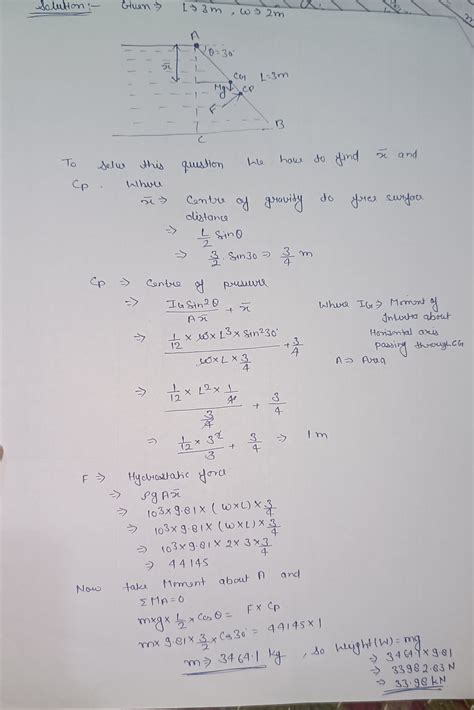 Solution:- Given → L → 3m , w → 2m
A
θ=30°
x̄
CG
L=3m
Mg
CP
F
B
C
To solve this question we have to find x̄ and
Cp. Where
x̄ ⇒ Centre of gravity to free surface
distance
⇒ L/2 sinθ
⇒ 3/2 . Sin30 ⇒ 3/4 m
Cp ⇒ Centre of pressure
⇒ IG sin²θ / A x̄ + x̄
Where IG ⇒ Moment of
Inertia about
Horizontal axis
passing through CG
A ⇒ Area
⇒ 1/12 × w × L³ × sin²30° / w × L × 3/4 + 3/4
⇒ 1/12 × L² × 1/4 / 3/4 + 3/4
⇒ 1/12 × 3² / 3 + 3/4 ⇒ 1m
F ⇒ Hydrostatic force
⇒ ρg A x̄
⇒ 10³ × 9.81 × (w×L) × 3/4
⇒ 10³ × 9.81 × (w×L) × 3/4
⇒ 10³ × 9.81 × 2 × 3 × 3/4
⇒ 44145
Now take Moment about A and
ΣMA = 0
m×g × L/2 × cosθ = F × Cp
m × 9.81 × 3/2 × cos30° = 44145 × 1
m ⇒ 3464.1 kg , so Weight(W) = mg
⇒ 3464.1 × 9.81
⇒ 33982.83 N
⇒ 33.98 kN